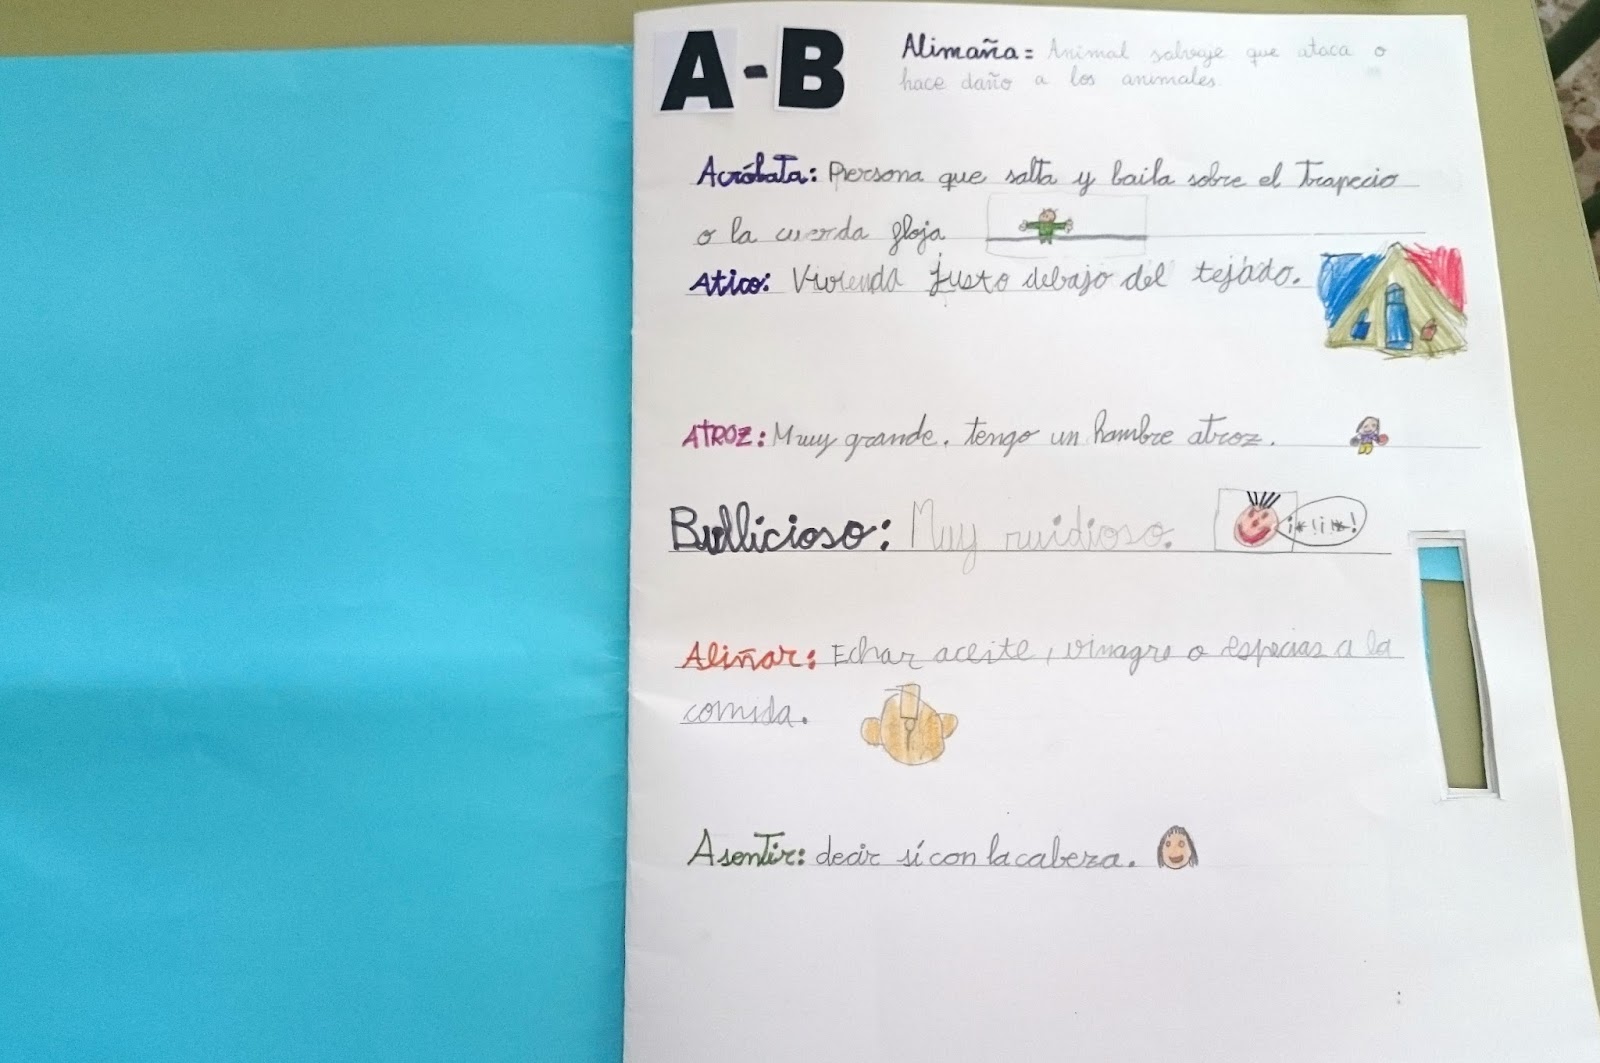 A-B
Alimaña= Animal salvaje que ataca o
hace daño a los animales.
Acróbata: Persona que salta y baila sobre el Trapecio
o la cuerda floja
Atico: Vivienda justo debajo del tejado.
ATROZ: Muy grande. tengo un hambre atroz.
Bullicioso: Muy ruidioso.
¡*!¡*!
Aliñar: Echar aceite, vinagre o especias a la
comida.
Asentir: decir sí con la cabeza.